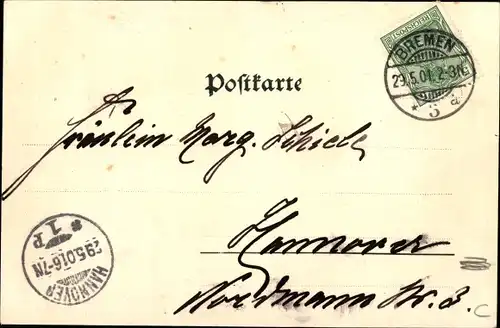 BREMEN
29.5.01. 2-3N.
* 5 a
Postkarte
Fräulein Marg. Schiele
Hannover
Nordmann Str. 3.
HANNOVER
29.5.01.6-7N
* 1 P
C